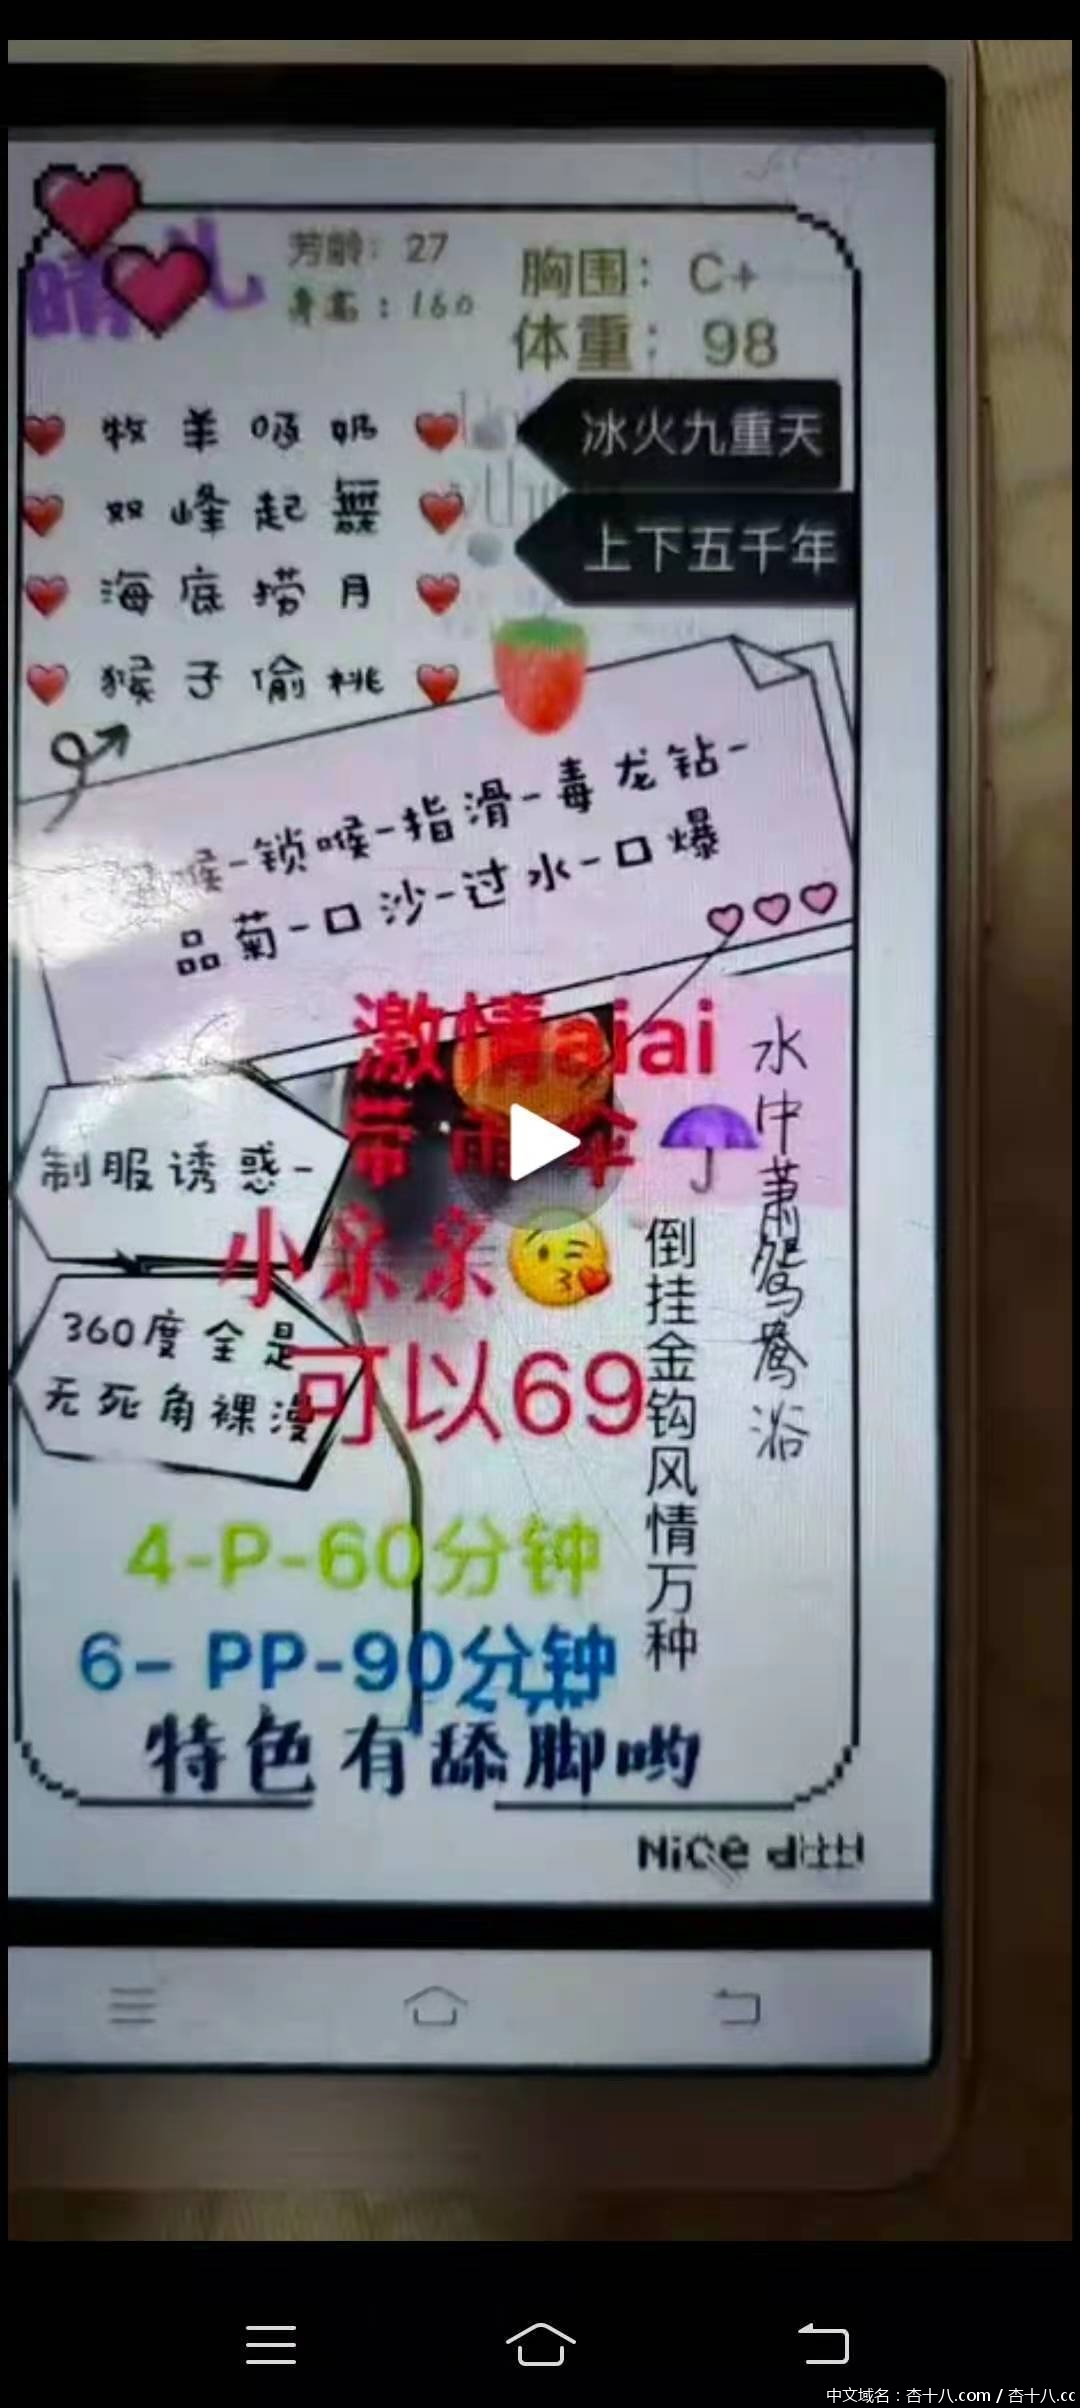 晴儿
芳龄：27
身高：160
胸围：C+
体重：98
牧羊咂奶
双峰起舞
海底捞月
猴子偷桃
冰火九重天
上下五千年
喉-锁喉-指滑-毒龙钻-
品菊-口沙-过水-口爆
激情aiai
带雨伞
小亲亲
可以69
制服诱惑-
360度全是
无死角裸漫
水中萧鸳鸯浴
倒挂金钩风情万种
4-P-60分钟
6- PP-90分钟
特色有舔脚哟
Nice
中文域名：杏十八.com / 杏十八.cc